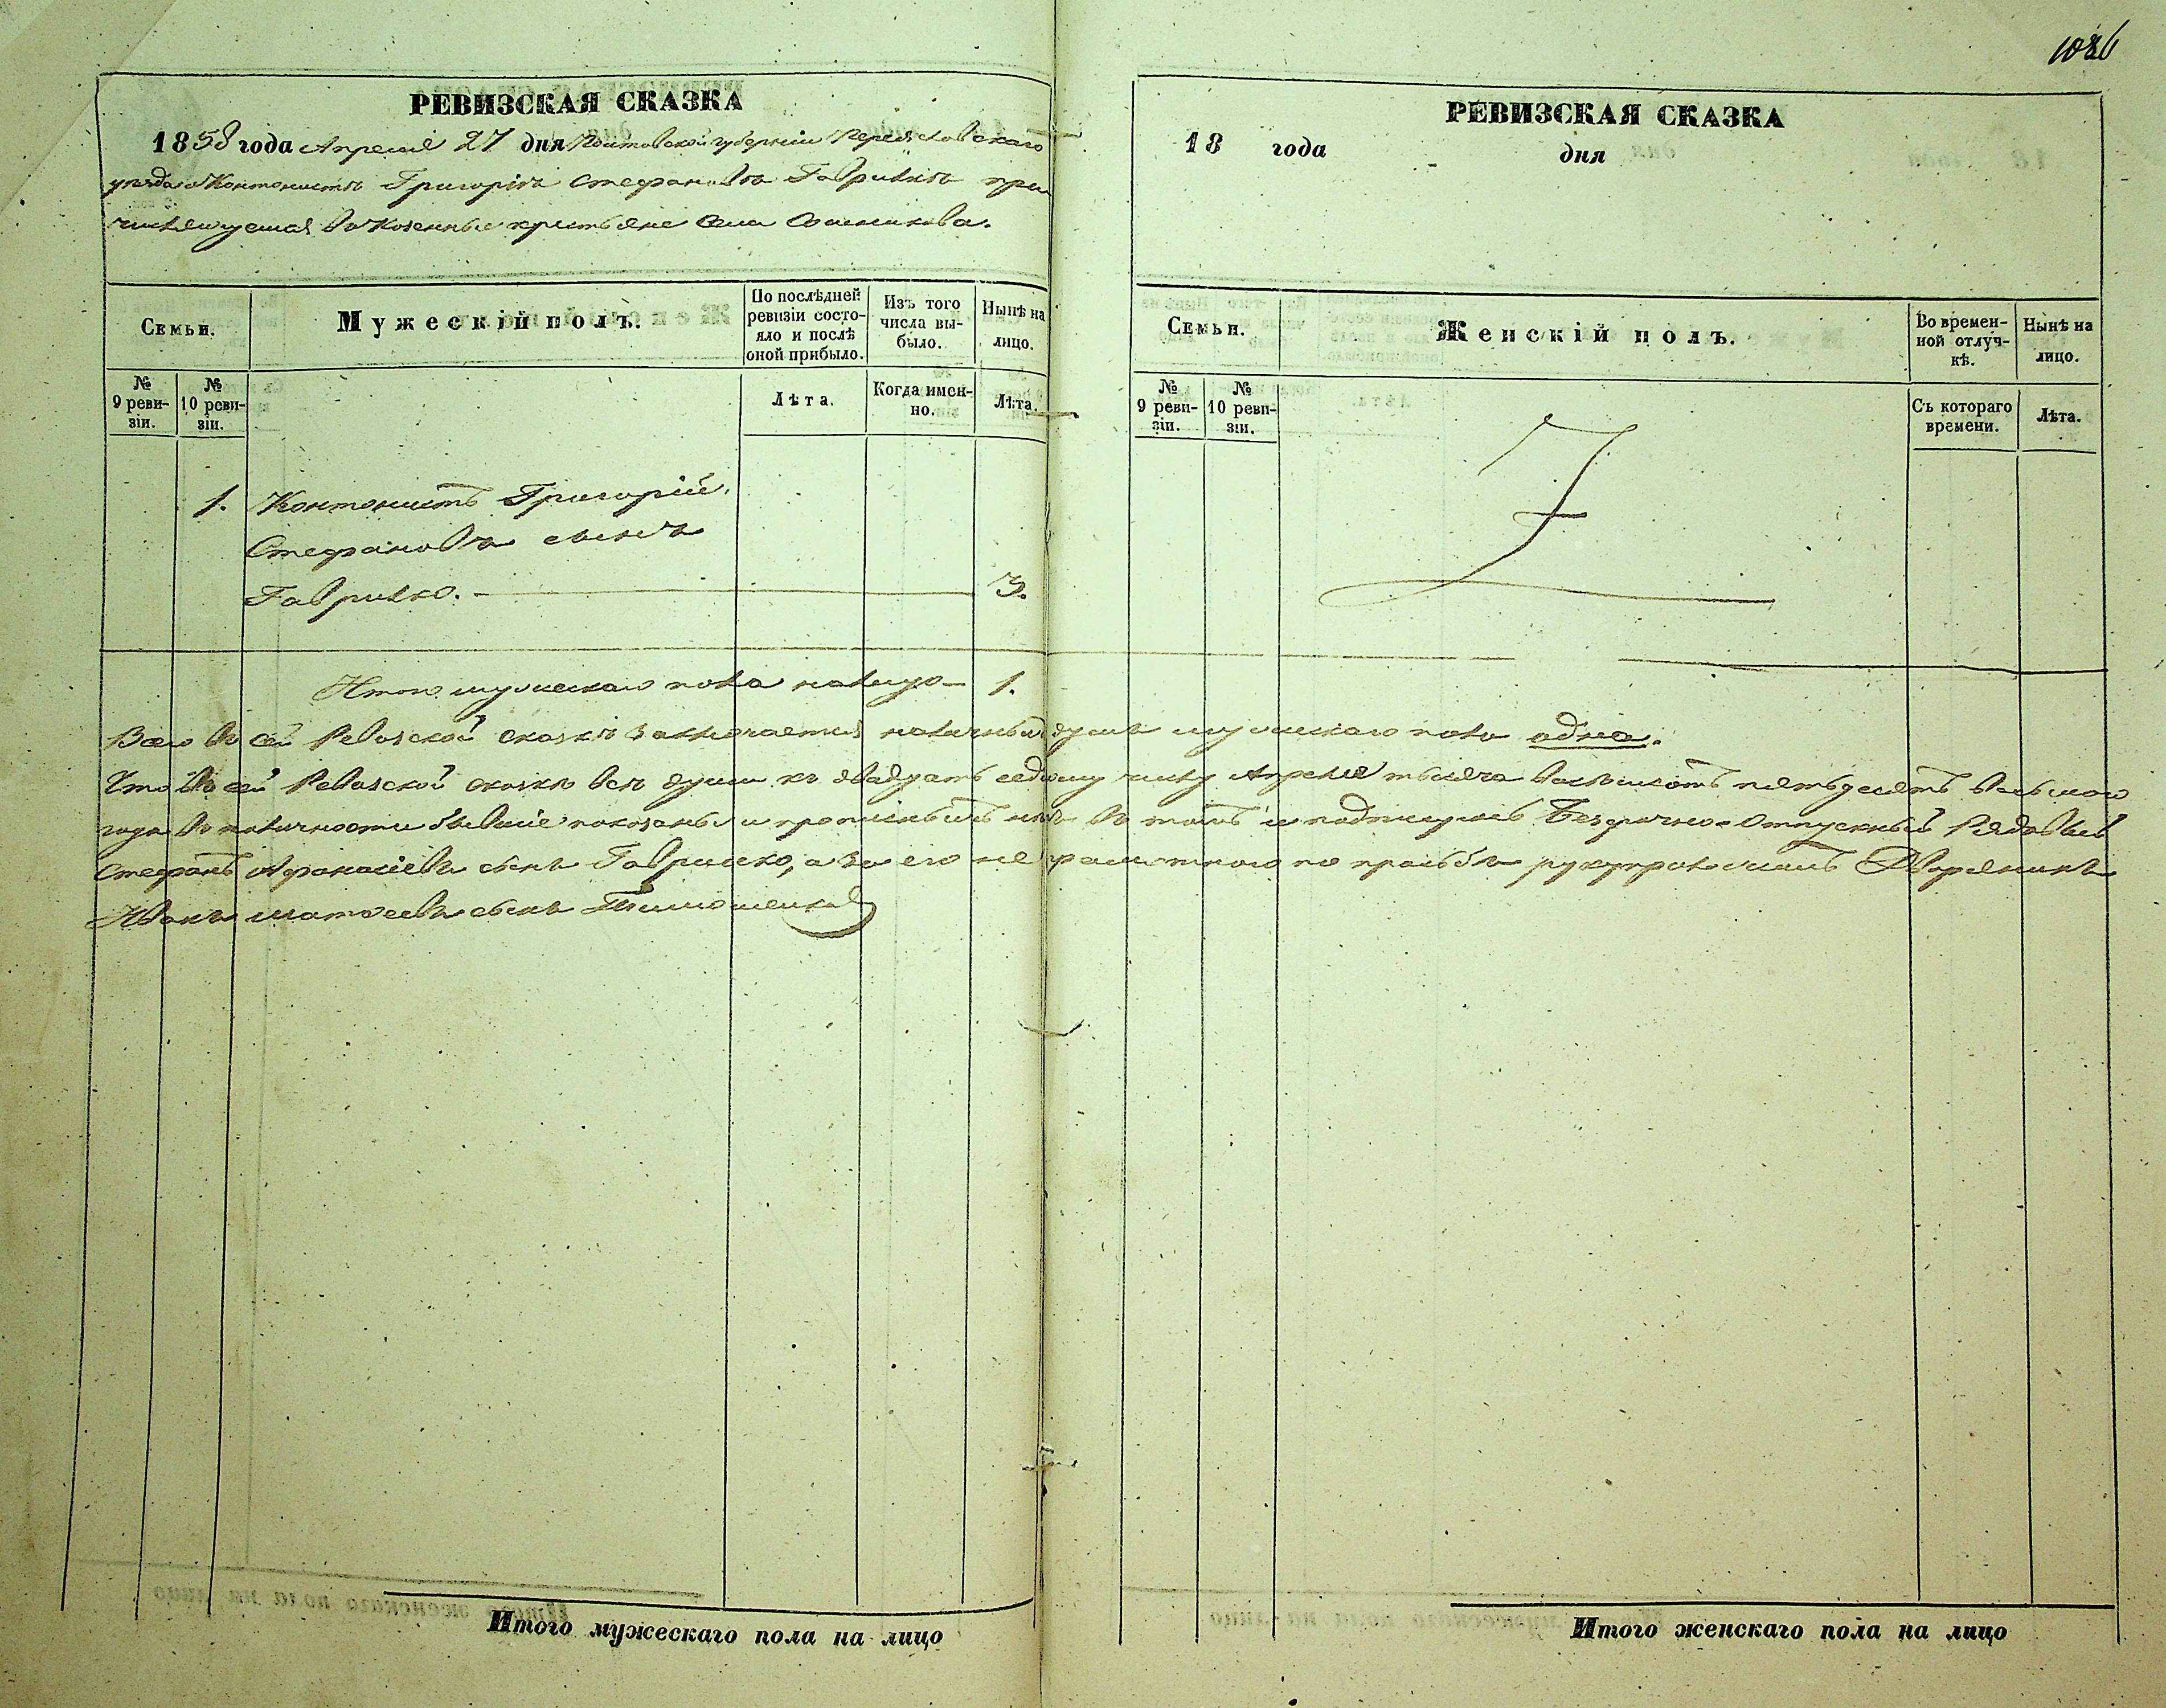 1026
РЕВИЗСКАЯ СКАЗКА
1858 года Апреля 27 дня Полтавской губерніи Переясловскаго
уезда о Контонистѣ Григоріѣ Стефановѣ Гаврилкѣ при
числяющемся въ Козенные крестьяне Села Сошникова.
Семьи.
Мужескій полъ.
По послѣдней ревизіи состояло и послѣ оной прибыло.
Изъ того числа выбыло.
Нынѣ на лицо.
№ 9 ревизіи.
№ 10 ревизіи.
Лѣта.
Когда именно.
Лѣта.
1. Контонистъ Григорій
Стефановъ сынъ
Гаврилко. 3.
Итого мужескаго пола налицо 1.
РЕВИЗСКАЯ СКАЗКА
18 года дня
Семьи.
Женскій полъ.
Во временной отлучкѣ.
Нынѣ на лицо.
№ 9 ревизіи.
№ 10 ревизіи.
Съ котораго времени.
Лѣта.
Всего въ сей Ревозской сказкѣ заключается наличныхъ душъ мужескаго пола одна.
Что въ сей Ревозской сказкѣ всѣ души къ двадцать седмому числу Апреля тысяча восемьсотъ пятьдесятъ восьмого
года въ наличности бывшіе показаны и прописныхъ нѣтъ въ томъ и подписуюсь Безсрочно-Отпускный Рядовый
Стефанъ Афанасіевъ сынъ Гаврилко, а за его не грамотного по прозьбѣ Дворянинъ
Иванъ Матвеевъ сынъ Тимошенко
Итого мужескаго пола на лицо
Итого женскаго пола на лицо